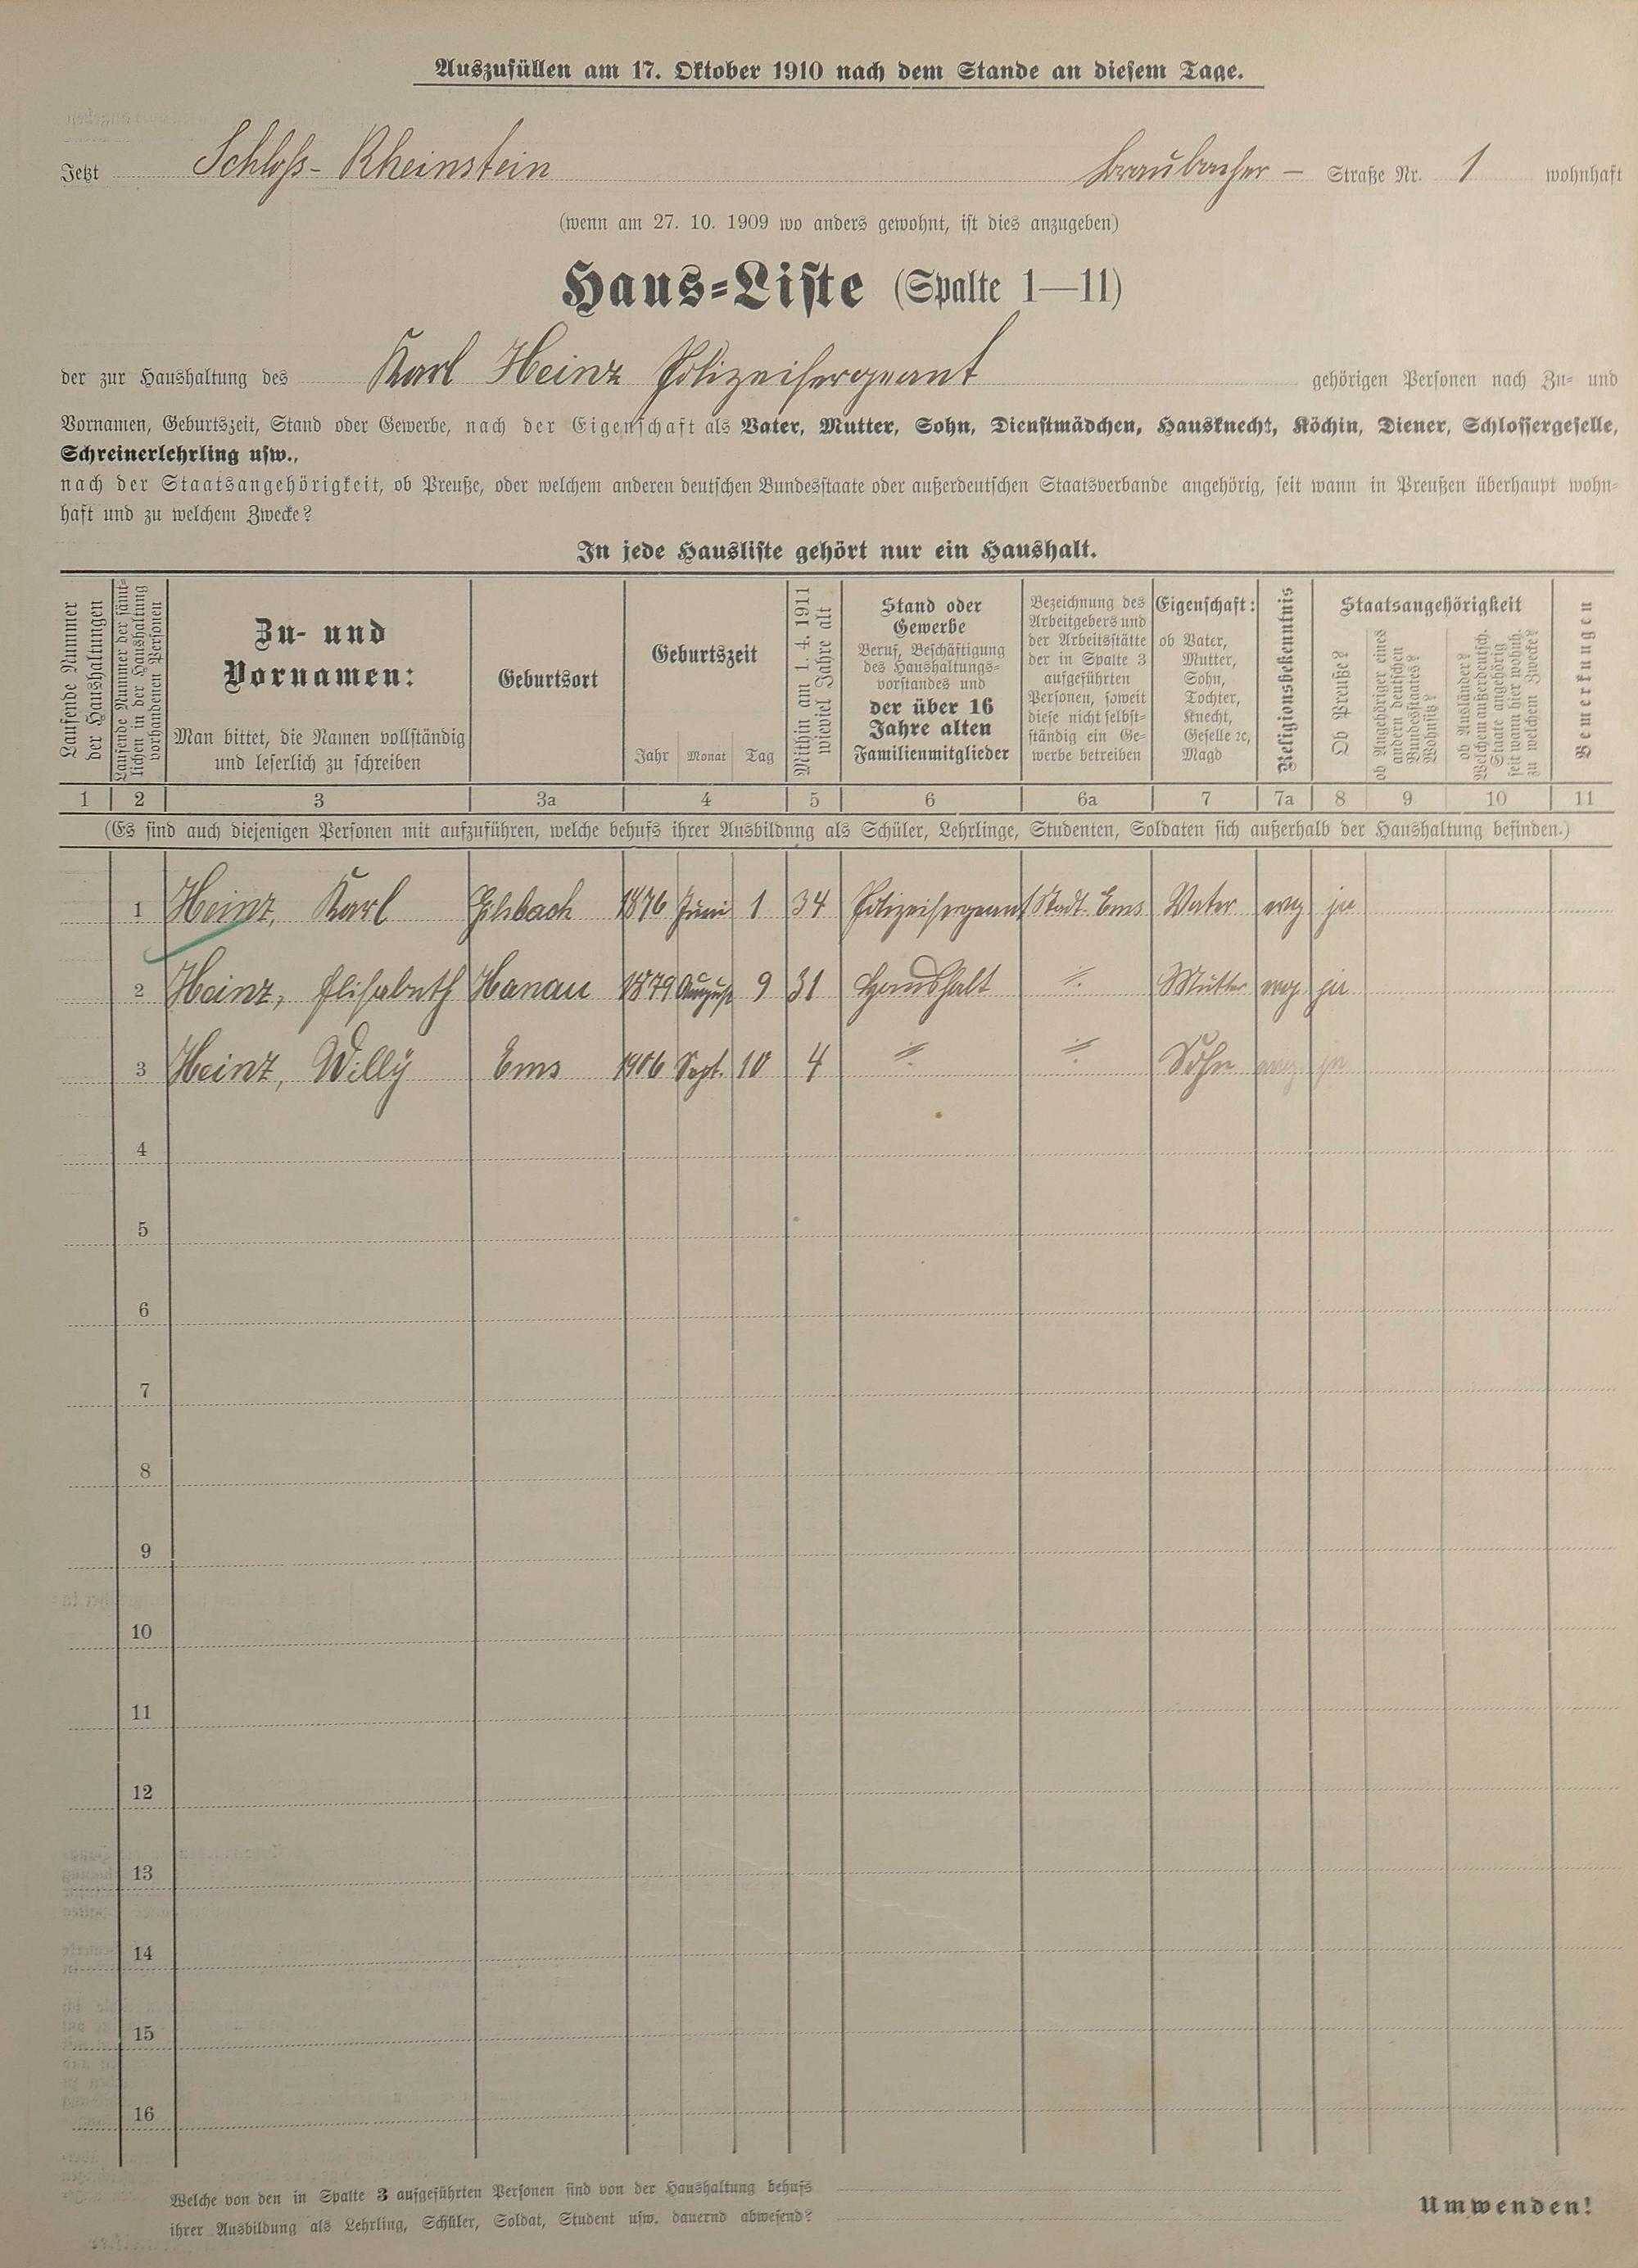 Auszufüllen am 17. Oktober 1910 nach dem Stande an diesem Tage.
Jetzt Schloß-Rheinstein Braubacher - Straße Nr. 1 wohnhaft
(wenn am 27. 10. 1909 wo anders gewohnt, ist dies anzugeben)
Haus-Liste (Spalte 1—11)
der zur Haushaltung des Karl Heinz Polizeisergeant gehörigen Personen nach Zu- und
Vornamen, Geburtszeit, Stand oder Gewerbe, nach der Eigenschaft als Vater, Mutter, Sohn, Dienstmädchen, Hausknecht, Köchin, Diener, Schlossergeselle,
Schreinerlehrling usw.,
nach der Staatsangehörigkeit, ob Preuße, oder welchem anderen deutschen Bundesstaate oder außerdeutschen Staatsverbande angehörig, seit wann in Preußen überhaupt wohn-
haft und zu welchem Zwecke?
In jede Hausliste gehört nur ein Haushalt.
Laufende Nummer
der Haushaltungen
Laufende Nummer der sämt-
lichen in der Haushaltung
vorhandenen Personen
Zu- und
Vornamen:
Man bittet, die Namen vollständig
und leserlich zu schreiben
Geburtsort
Geburtszeit
Jahr Monat Tag
Mithin am 1. 4. 1911
wieviel Jahre alt
Stand oder
Gewerbe
Beruf, Beschäftigung
des Haushaltungs-
vorstandes und
der über 16
Jahre alten
Familienmitglieder
Bezeichnung des
Arbeitgebers und
der Arbeitsstätte
der in Spalte 3
aufgeführten
Personen, soweit
diese nicht selbst-
ständig ein Ge-
werbe betreiben
Eigenschaft:
ob Vater,
Mutter,
Sohn,
Tochter,
Knecht,
Geselle ꝛc,
Magd
Religionsbekenntnis
Staatsangehörigkeit
Ob Preuße?
ob Angehöriger eines
andern deutschen
Bundesstaates?
Wohnsitz?
ob Ausländer?
Welchem außerdeutsch.
Staate angehörig
seit wann hier wohnh.
zu welchem Zwecke?
Bemerkungen
1 2 3 3a 4 5 6 6a 7 7a 8 9 10 11
(Es sind auch diejenigen Personen mit aufzuführen, welche behufs ihrer Ausbildung als Schüler, Lehrlinge, Studenten, Soldaten sich außerhalb der Haushaltung befinden.)
1 Heinz, Karl 1876 Juni 1 34 Polizeisergeant Stadt. Ems Vater evg ja
2 Heinz, Elisabeth Hanau 1879 August 9 31 Haushalt Mutter evg. ja
3 Heinz, Willy Ems 1906 Sept. 10 4 Sohn evg. ja
4
5
6
7
8
9
10
11
12
13
14
15
16
Welche von den in Spalte 3 aufgeführten Personen sind von der Haushaltung behufs
ihrer Ausbildung als Lehrling, Schüler, Soldat, Student usw. dauernd abwesend?
Umwenden!